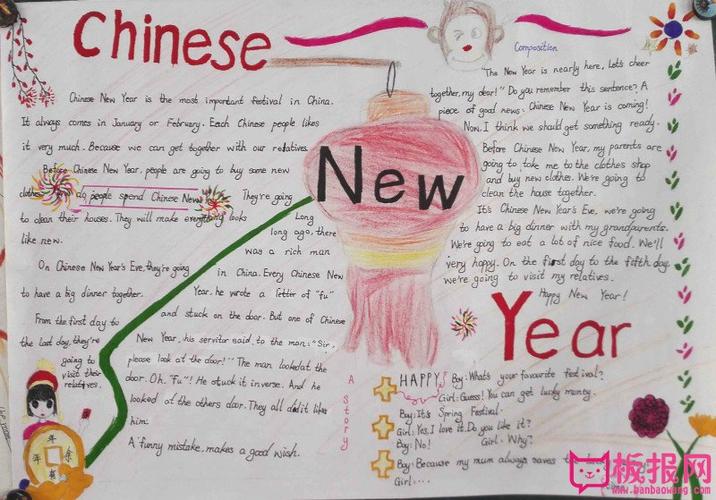 Chinese
New
Year
Chinese New Year is the most important festival in China.
It always comes in January or February. Each Chinese people likes
it very much. Because we can get together with our relatives.
Before Chinese New Year, people are going to buy some new
clothes.
do people spend Chinese New
They're going
to clean their houses. They will make everything looks
like new.
On Chinese New Year's Eve, they're going
to have a big dinner together.
From the first day to
the last day, they're
going to
visit their
relatives.
Long
long ago, there
was a rich man
in China. Every Chinese New
Year, he wrote a letter of "fu"
and stuck on the door. But one of Chinese
New Year, his servitor said to the man: "Sir,
please look at the door!" The man looked at the
door. Oh, "Fu"! He stuck it inverse. And he
looked of the others door. They all did it like
him.
A funny mistake, makes a good wish.
A Story
Composition
"The New Year is nearly here, Let's cheer
together, my dear!" Do you remember this sentence? A
piece of good news. Chinese New Year is coming!
Now, I think we should get something ready.
Before Chinese New Year, my parents are
going to take me to the clothes shop
and buy new clothes. We're going to
clean the house together.
It's Chinese New Year's Eve, we're going
to have a big dinner with my grandparents.
We're going to eat a lot of nice food. We'll
very happy. On the first day to the fifth day,
we're going to visit my relatives.
Happy New Year!
HAPPY
Boy: What's your favourite festival?
Girl: Guess! You can get lucky money.
Boy: It's Spring Festival.
Girl: Yes, I love it. Do you like it?
Boy: No! Girl: Why?
Boy: Because my mum always saves
Girl: ...
年
年
余
有
板报网
www.banbaowang.com